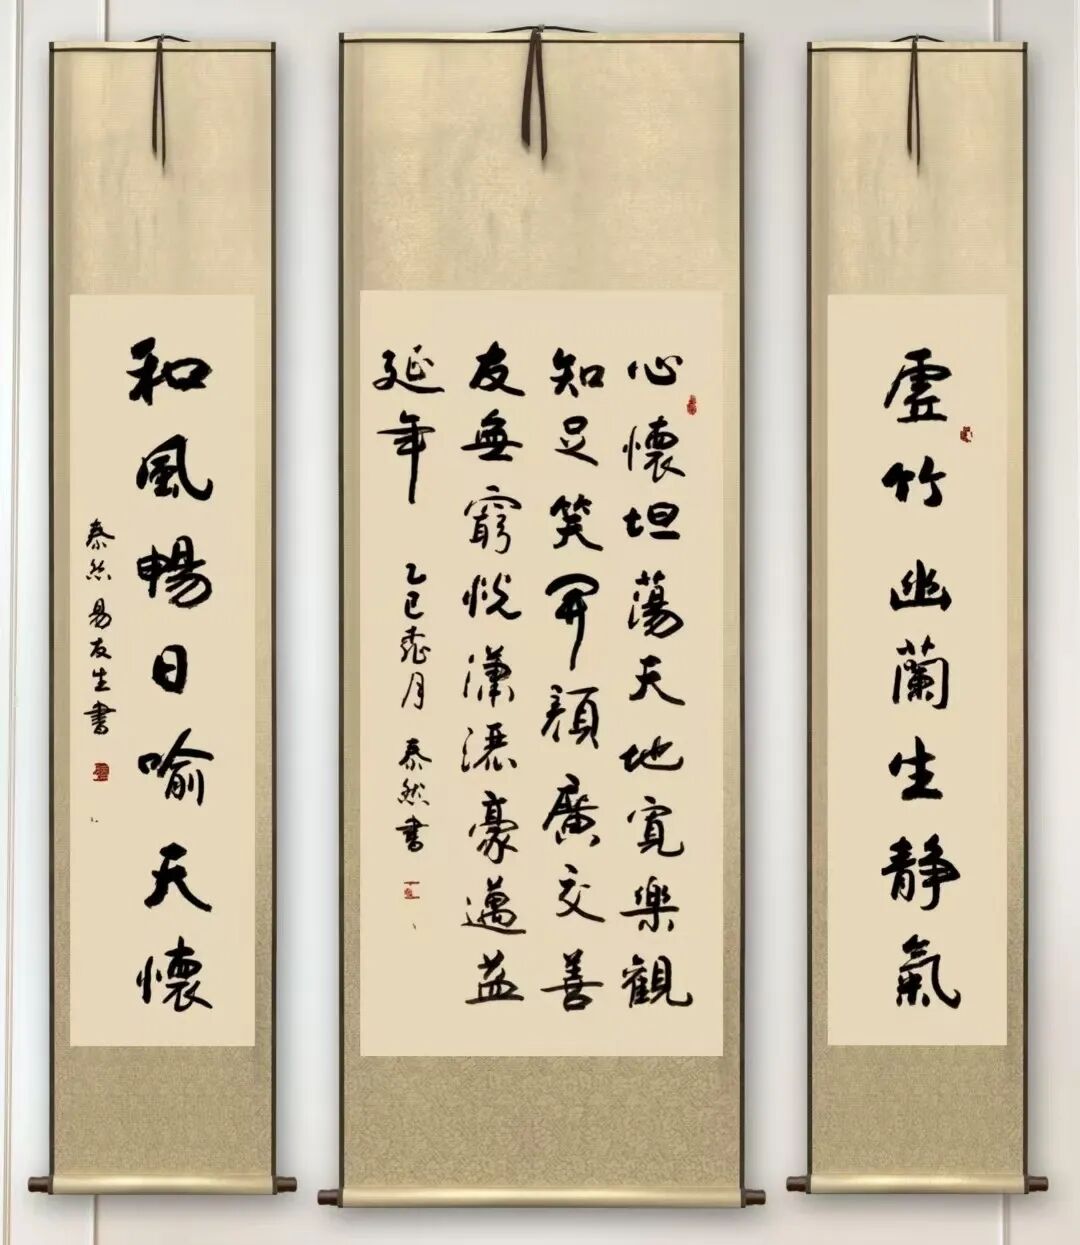 虛竹幽蘭生靜氣
心懷坦蕩天地寬樂觀
知足笑開顏廣交善
友無窮悅瀟灑豪邁益
延年
乙巳 月 泰然書
和風暢日喻天懷
泰然 易友生書